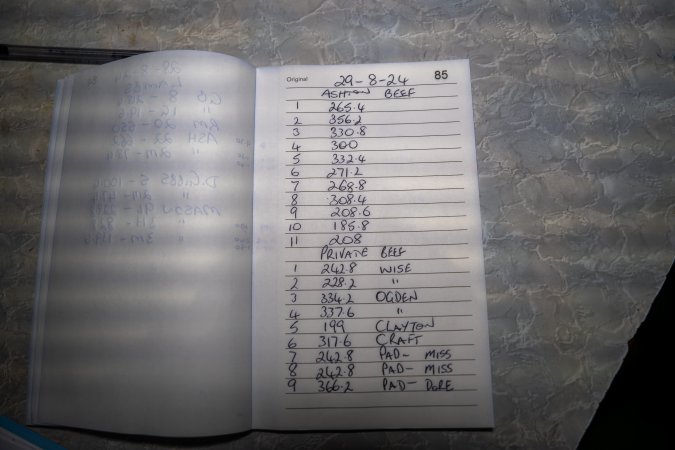 Original 29-8-24 85
ASHTON BEEF
1 265.4
2 356.2
3 330.8
4 300
5 332.4
6 271.2
7 268.8
8 308.4
9 208.6
10 185.8
11 208
PRIVATE BEEF
1 242.8 WISE
2 228.2 "
3 334.2 OGDEN
4 337.6 "
5 199 CLAYTON
6 317.6 CRAFT
7 242.8 PAD- MISS
8 242.8 PAD- MISS
9 366.2 PAD- DORE